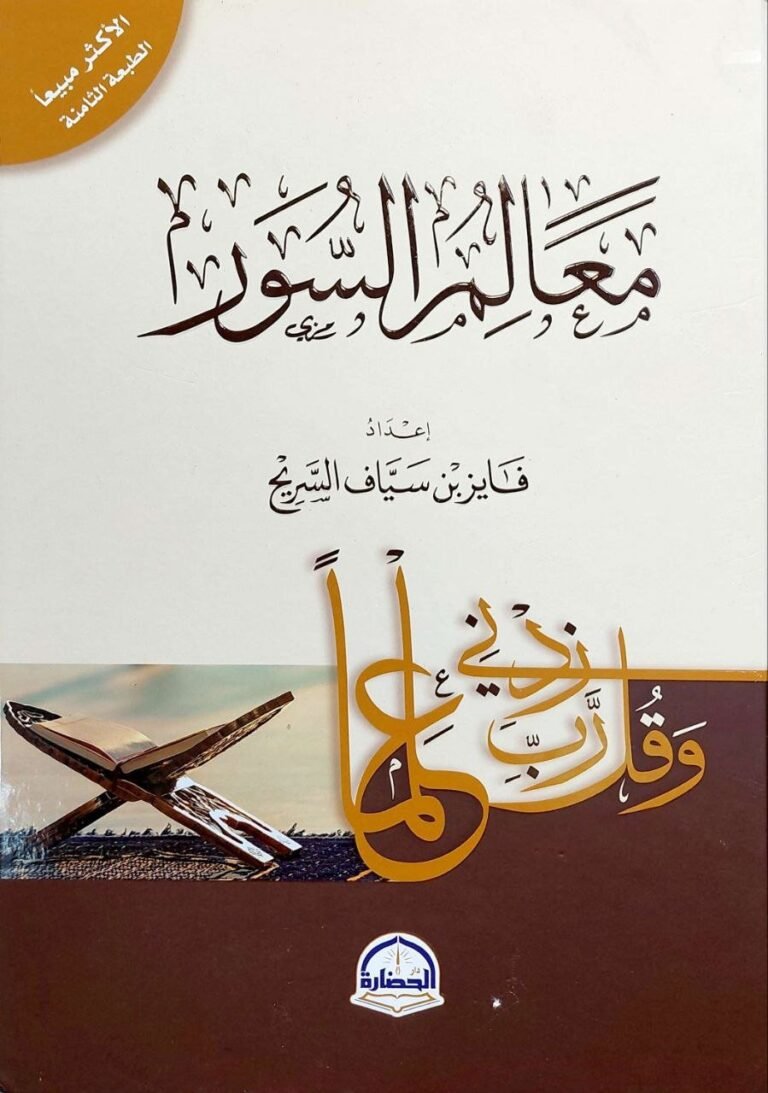 الأكثر مبيعاً
الطبعة الثامنة
مَعَالِمُ السُّوَر
إعْدَادُ
فَايز بْن سَيَّاف السَّرِيْح
وَقُل رَّبِّ زِدْنِي عِلْماً
دار
الحضارة